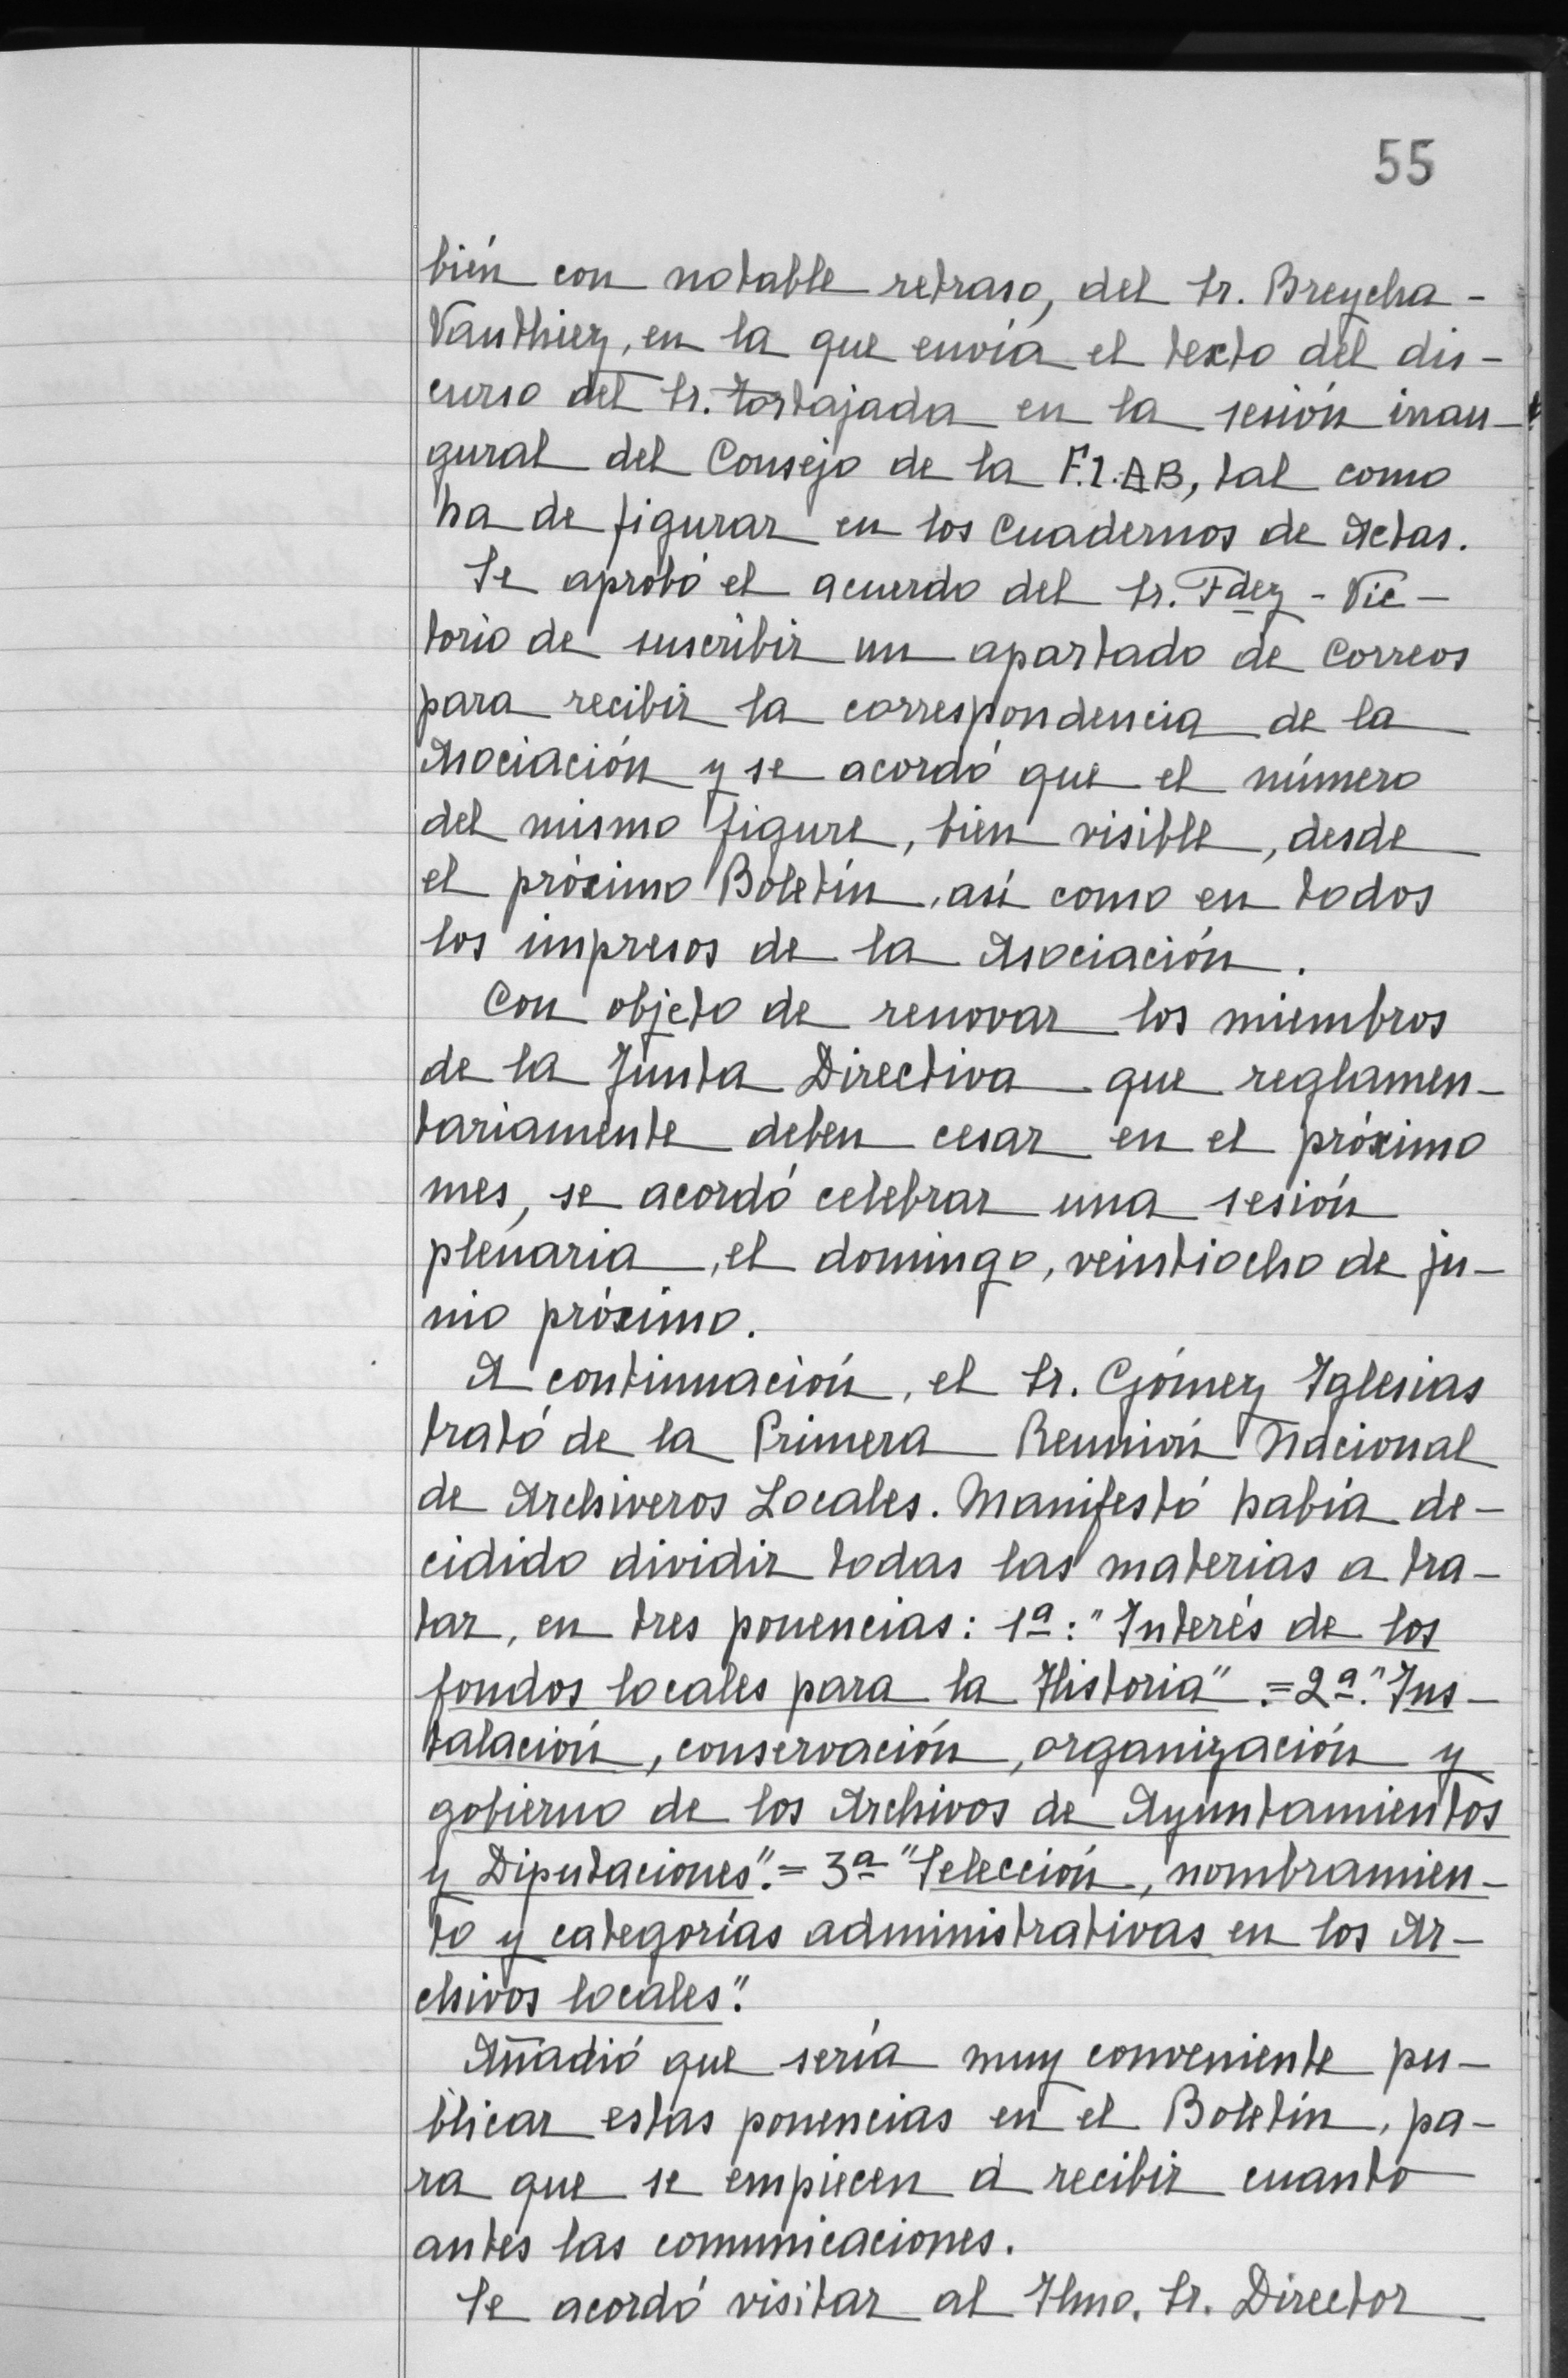 55
bién con notable retraso, del Sr. Breycha-
Vauthiez, en la que envía el texto del dis-
curso del Sr. Tortajada en la sesión inau-
gural del Consejo de la F.I.A.B, tal como
ha de figurar en los Cuadernos de Actas.
Se aprobó el acuerdo del Sr. Fdez-Vic-
torio de suscribir un apartado de Correos
para recibir la correspondencia de la
Asociación y se acordó que el número
del mismo figure, bien visible, desde
el próximo Boletín, así como en todos
los impresos de la Asociación.
Con objeto de renovar los miembros
de la Junta Directiva que reglamen-
tariamente deben cesar en el próximo
mes, se acordó celebrar una sesión
plenaria, el domingo, veintiocho de ju-
nio próximo.
A continuación, el Sr. Gómez Iglesias
trató de la Primera Reunión Nacional
de Archiveros Locales. Manifestó había de-
cidido dividir todas las materias a tra-
tar, en tres ponencias: 1ª: "Interés de los
fondos locales para la Historia".=2ª."Ins-
talación, conservación, organización y
gobierno de los Archivos de Ayuntamientos
y Diputaciones".= 3ª "Selección, nombramien-
to y categorías administrativas en los Ar-
chivos locales".
Añadió que sería muy conveniente pu-
blicar estas ponencias en el Boletín, pa-
ra que se empiecen a recibir cuanto
antes las comunicaciones.
Se acordó visitar al Ilmo. Sr. Director